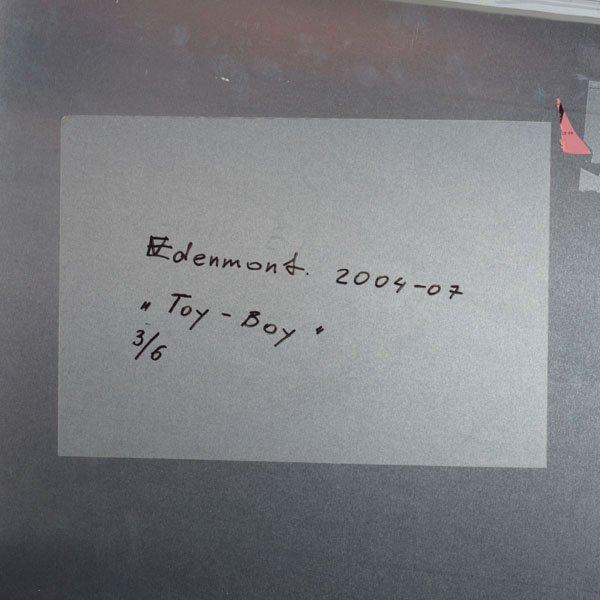 Edenmont. 2004-07
"Toy-Boy"
3/6